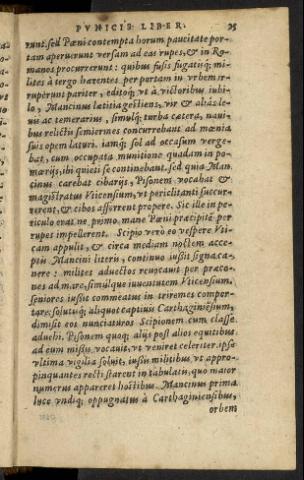 PVNICIS LIBER. 25
runt. sed Pœni contempta horum paucitate por-
tam aperuerunt versam ad eas rupes, & in Ro-
manos procurrerunt: quibus fusis fugatisq; mi-
lites à tergo hærentes per portam in vrbem ir-
rupêrunt pariter, editoq; vt à victoribus iubi-
lo, Mancinus lætitia gestiens, vir & aliàs le-
uis ac temerarius, simulq; turba cætera, naui-
bus relictis semiermes concurrebant ad mœnia
suis opem laturi. iamq; sol ad occasum verge-
bat, cum occupata munitione quadam in po-
mœrijs, ibi quieti se continebant. sed quia Man-
cinus carebat cibarijs, Pisonem vocabat &
magistratus Vticensium, vt periclitanti succur-
rerent, & cibos afferrent propere. Sic ille in pe-
riculo erat ne primo mane Pœni præcipitē per
rupes impellerent. Scipio verò eo vespere Vti-
cam appulit, & circa mediam noctem acce-
ptis Mancini literis, continuo iussit signa ca-
nere: milites aduectos reuocauit per præco-
nes ad mare, simulque iuuentutem Vticensium,
seniores iussit commeatus in triremes compor-
tare: solutisq; aliquot captiuis Carthaginēsium,
dimisit eos nunciaturos Scipionem cum classe
aduehi. Pisonem quoq; alijs post alios equitibus
ad eum missis vocauit, vt veniret celeriter. ipse
vltima vigilia soluit, iussis militibus vt appro-
pinquantes recti starent in tabulatis, quo maior
numerus appareret hostibus. Mancinus prima
luce vndiq; oppugnatus à Carthaginensibus,
orbem